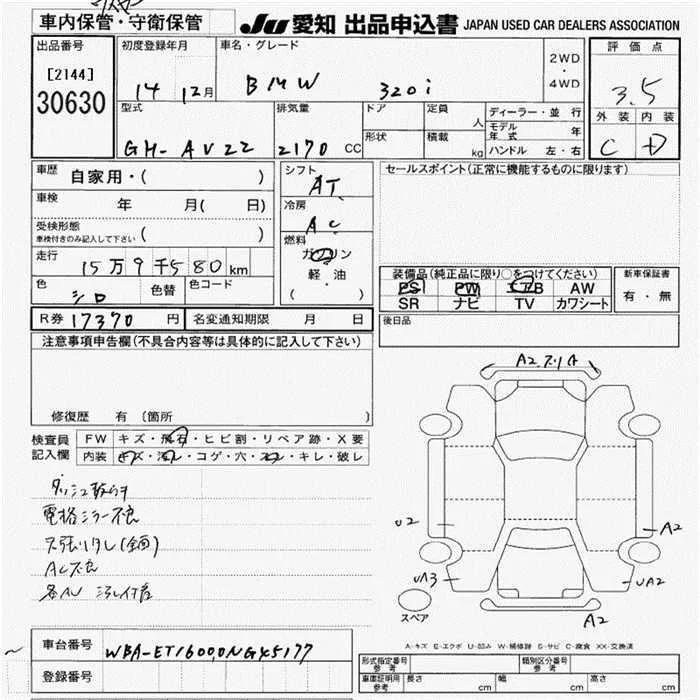 車内保管・守衛保管
JU 愛知 出品申込書 JAPAN USED CAR DEALERS ASSOCIATION
出品番号
[2144]
30630
初度登録年月
14 12月
車名・グレード
BMW 320i
2WD
・
4WD
評価点
3.5
外装 内装
C D
型式
GH-AV22
排気量
2170 CC
ドア
形状
定員
人
積載
kg
ディーラー・並 行
モデル年式 年
ハンドル 左・右
車歴
自家用・( )
車検 年 月( 日)
受検形態
車検付きのみ記入して下さい ( )
走行
15万9千580km
色 シロ 色替 色コード
シフト
AT
冷房
AC
燃料
ガソリン
軽・油
( ・ )
セールスポイント(正常に機能するものに限ります)
装備品(純正品に限り○をつけてください)
PS PW エアB AW
SR ナビ TV カワシート
新車保証書
有・無
R券 17370円 名変通知期限 月 日
後日品
注意事項申告欄(不具合内容等は具体的に記入して下さい)
修復歴 有 〔箇所 〕
検査員
記入欄
FW キズ・飛石・ヒビ割・リペア跡・X要
内装 キズ・汚レ・コゲ・穴・スレ・キレ・破レ
電格ミラー不良
AC不良
A2 スリA
U2
A2
UA3
UA2
A2
スペア
A-キズ E-エクボ U-凹み W-補修跡 S-サビ C-腐食 XX-交換済
車台番号
登録番号
型式指定番号
参考
類別区分番号
参考
車庫証明用
参考
長さ cm 幅 cm 高さ cm